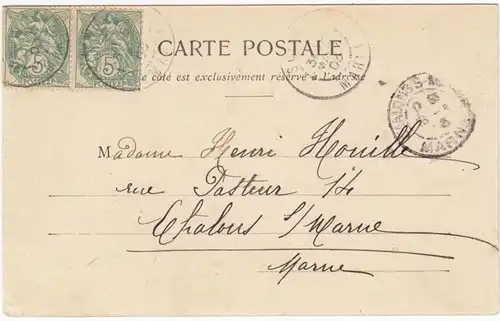 CARTE POSTALE
Ce côté est exclusivement réservé à l'adresse
5 5
MARNE
Madame Henri Houille
rue Pasteur 14
Chalons s/Marne
Marne